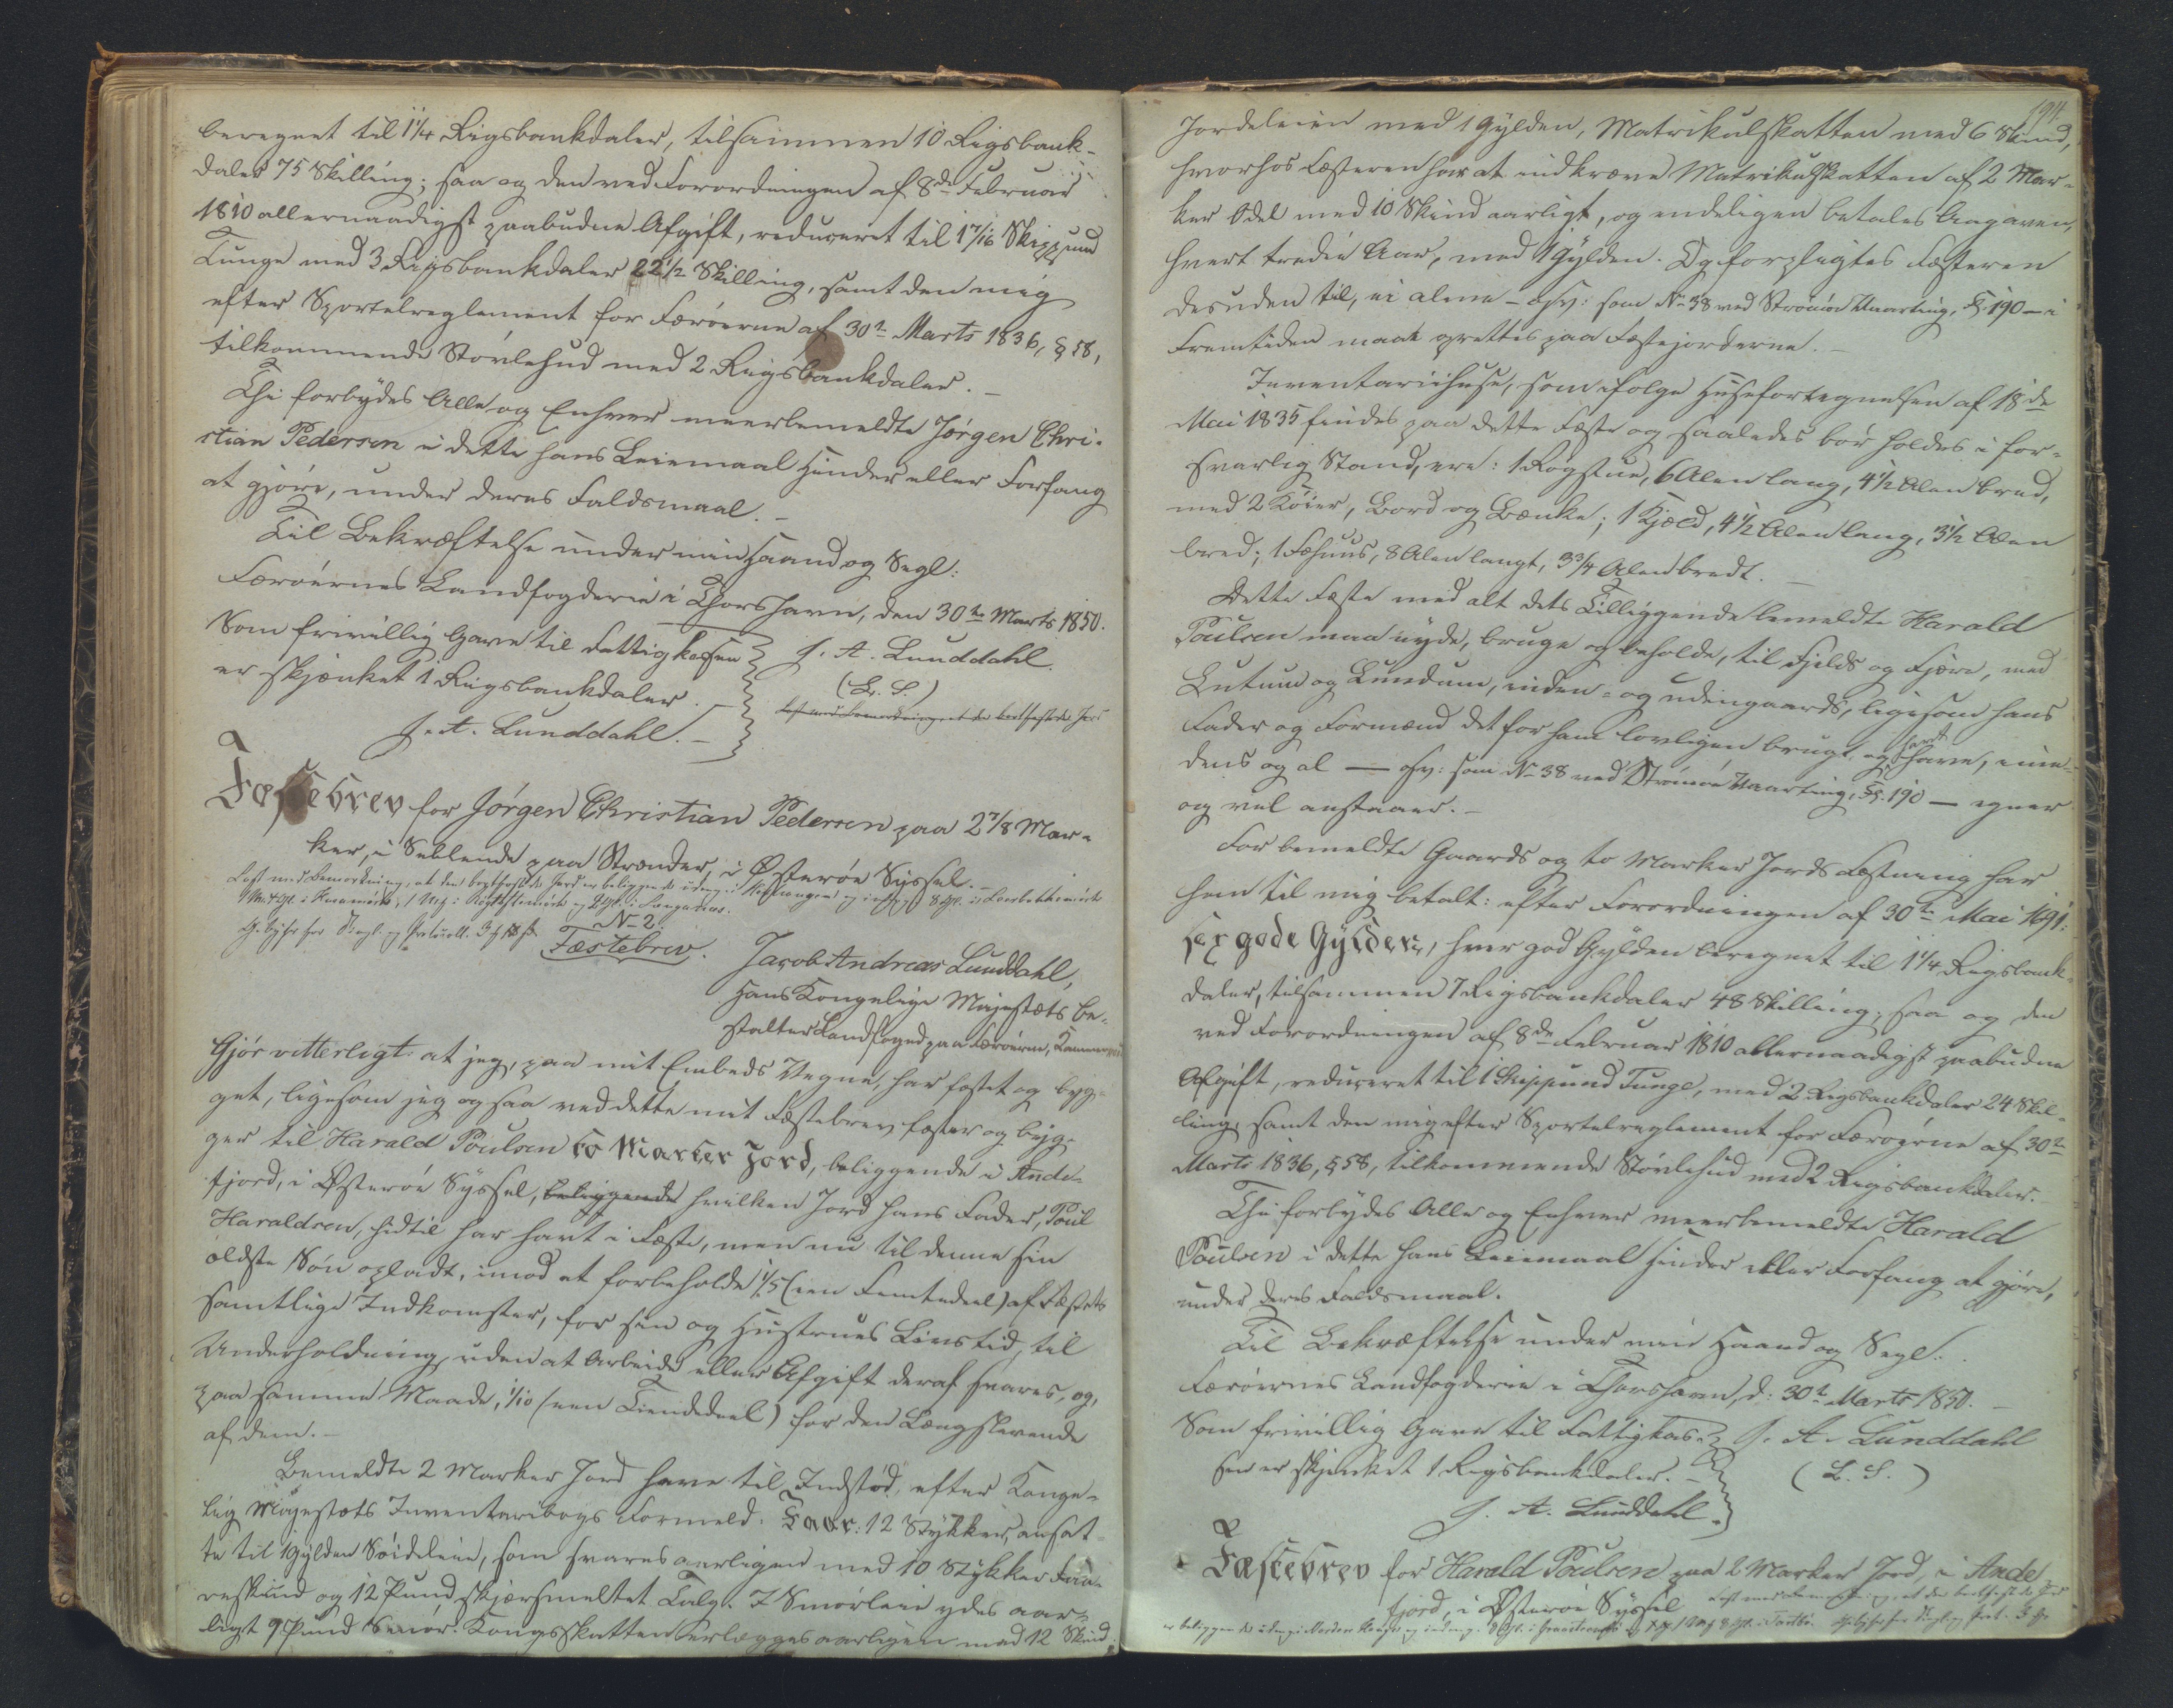 beregnet til 1¼ Rigsbankdaler, tilsammen 10 Rigsbank-
daler 75 Skilling; saa og den ved Forordningen af 8de Februar
1810 allernaadigst paabudne Afgift, reduceret til 1 7/16 Skippund
Tunge med 3 Rigsbankdaler 22½ Skilling, samt den mig
efter Sportelreglement for Færøerne af 30te Marts 1836, § 58,
tilkommende Støvlehud med 2 Rigsbankdaler.-
Thi forbydes Alle og Enhver meerbemeldte Jørgen Chri-
stian Pedersen i dette hans Leiemaal Hinder eller Forfang
at gjøre, under deres Faldsmaal.-
Til Bekræftelse under min Haand og Segl:
Færøernes Landfogderie i Thorshavn, den 30te Marts 1850.
Som frivillig Gave til Fattigkassen
er skjænket 1 Rigsbankdaler.-
J. A. Lunddahl.-
J. A. Lunddahl.
(L. S.)
Læst med Bemærkning at den bortfæstede Jord
Fæstebrev for Jørgen Christian Pedersen paa 2 7/8 Mar-
ker, i Sellende paa Strænder, i Østerøe Syssel.-
Læst med Bemærkning, at den bortfæstede Jord er beliggende
No 2.
Fæstebrev.
Jacob Andreas Lunddahl,
Hans Kongelige Majestæts be-
stalter Landfoged paa Færøerne,
Gjør vitterligt: at jeg, paa mit Embeds Vegne, har fæstet og byg-
get, ligesom jeg og saa ved dette mit Fæstebrev fæster og byg-
ger til Harald Poulsen to Marker Jord, beliggende i Ande-
fjord, i Østerøe Syssel, beliggende hvilken Jord hans Fader, Poul
Haraldsen, hidtil har havt i Fæste, men nu til denne sin
ældste Søn opladt, imod at forbeholde 1/5 (een Femtedeel) af Fæstets
samtlige Indkomster, for sin og Hustrues Livstid, til
Underholdning, uden at Arbeide eller Afgift deraf svares, og,
paa samme Maade, 1/10 (een Tiendedeel) for den Længstlevende
af dem.-
Bemeldte 2 Marker Jord have til Indstød, efter Konge-
lig Majestæts Inventariebogs Formeld: Faar: 12 Stykker, ansat-
te til 1 Gylden Søideleie, som svares aarligen med 10 Stykker Faa-
reskind og 12 Pund skjærsmeltet Talg. I Smørleie ydes aar-
ligt 9 Pund Smør. Kongsskatten erlægges aarligen med 12 Skind.
194
Jordeleien med 1 Gylden, Matrikulskatten med 6 Skind,
hvorhos Fæsteren har at indkræve Matrikulskatten af 2 Mar-
ker Odel med 10 Skind aarligt, og endeligen betales Aagaven,
hvert tredie Aar, med 1 Gylden. Og forpligtes Fæsteren
desuden til, ei alene - osv: som No 38 ved Strømøe Vaarting, Fs. 190 - i
Fremtiden maatte oprettes paa Fæstejorderne.-
Inventariehuse, som ifølge Husefortegnelsen af 18de
Mai 1835 findes paa dette Fæste og saaledes bør holdes i for-
svarlig Stand, ere: 1 Rogstue, 6 Alen lang, 4½ Alen bred,
med 2 Køier, Bord og Bænke; 1 Kjæld, 4½ Alen lang, 3½ Alen
bred; 1 Fæhuus, 8 Alen langt, 3¾ Alen bredt.-
Dette Fæste med alt dets Tilliggende bemeldte Harald
Poulsen maa nyde, bruge og beholde, til Fjelds og Fjære, med
Lutum og Lundum, inden- og udengaards, ligesom hans
Fader og Formænd det før ham lovligen brugt og havt have, inne-
dens og al - osv: som No 38 ved Strømøe Vaarting, Fs. 190 - egner
og vel anstaaer.-
For bemeldte Gaards og to Marker Jords Fæstning har
han til mig betalt: efter Forordningen af 30te Mai 1691:
sex gode Gylden, hver god Gylden beregnet til 1¼ Rigsbank-
daler, tilsammen 7 Rigsbankdaler 48 Skilling; saa og den
ved Forordningen af 8de Februar 1810 allernaadigst paabudne
Afgift, reduceret til 1 Skippund Tunge, med 2 Rigsbankdaler 24 Skil-
ling, samt den mig efter Sportelreglement for Færøerne af 30te
Marts 1836, § 58, tilkommende Støvlehud med 2 Rigsbankdaler.-
Thi forbydes Alle og Enhver meerbemeldte Harald
Poulsen i dette hans Leiemaal Hinder eller Forfang at gjøre,
under deres Faldsmaal.
Til Bekræftelse under min Haand og Segl:
Færøernes Landfogderie i Thorshavn, d: 30te Marts 1850.-
Som frivillig Gave til Fattigkas-
sen er skjenket 1 Rigsbankdaler.-
J. A. Lunddahl.
J. A. Lunddahl
(L. S.)
Fæstebrev for Harald Poulsen paa 2 Marker Jord, i Ande-
fjord, i Østerøe Syssel
Læst med Bemærkning, at den bortfæstede Jord
er beliggende